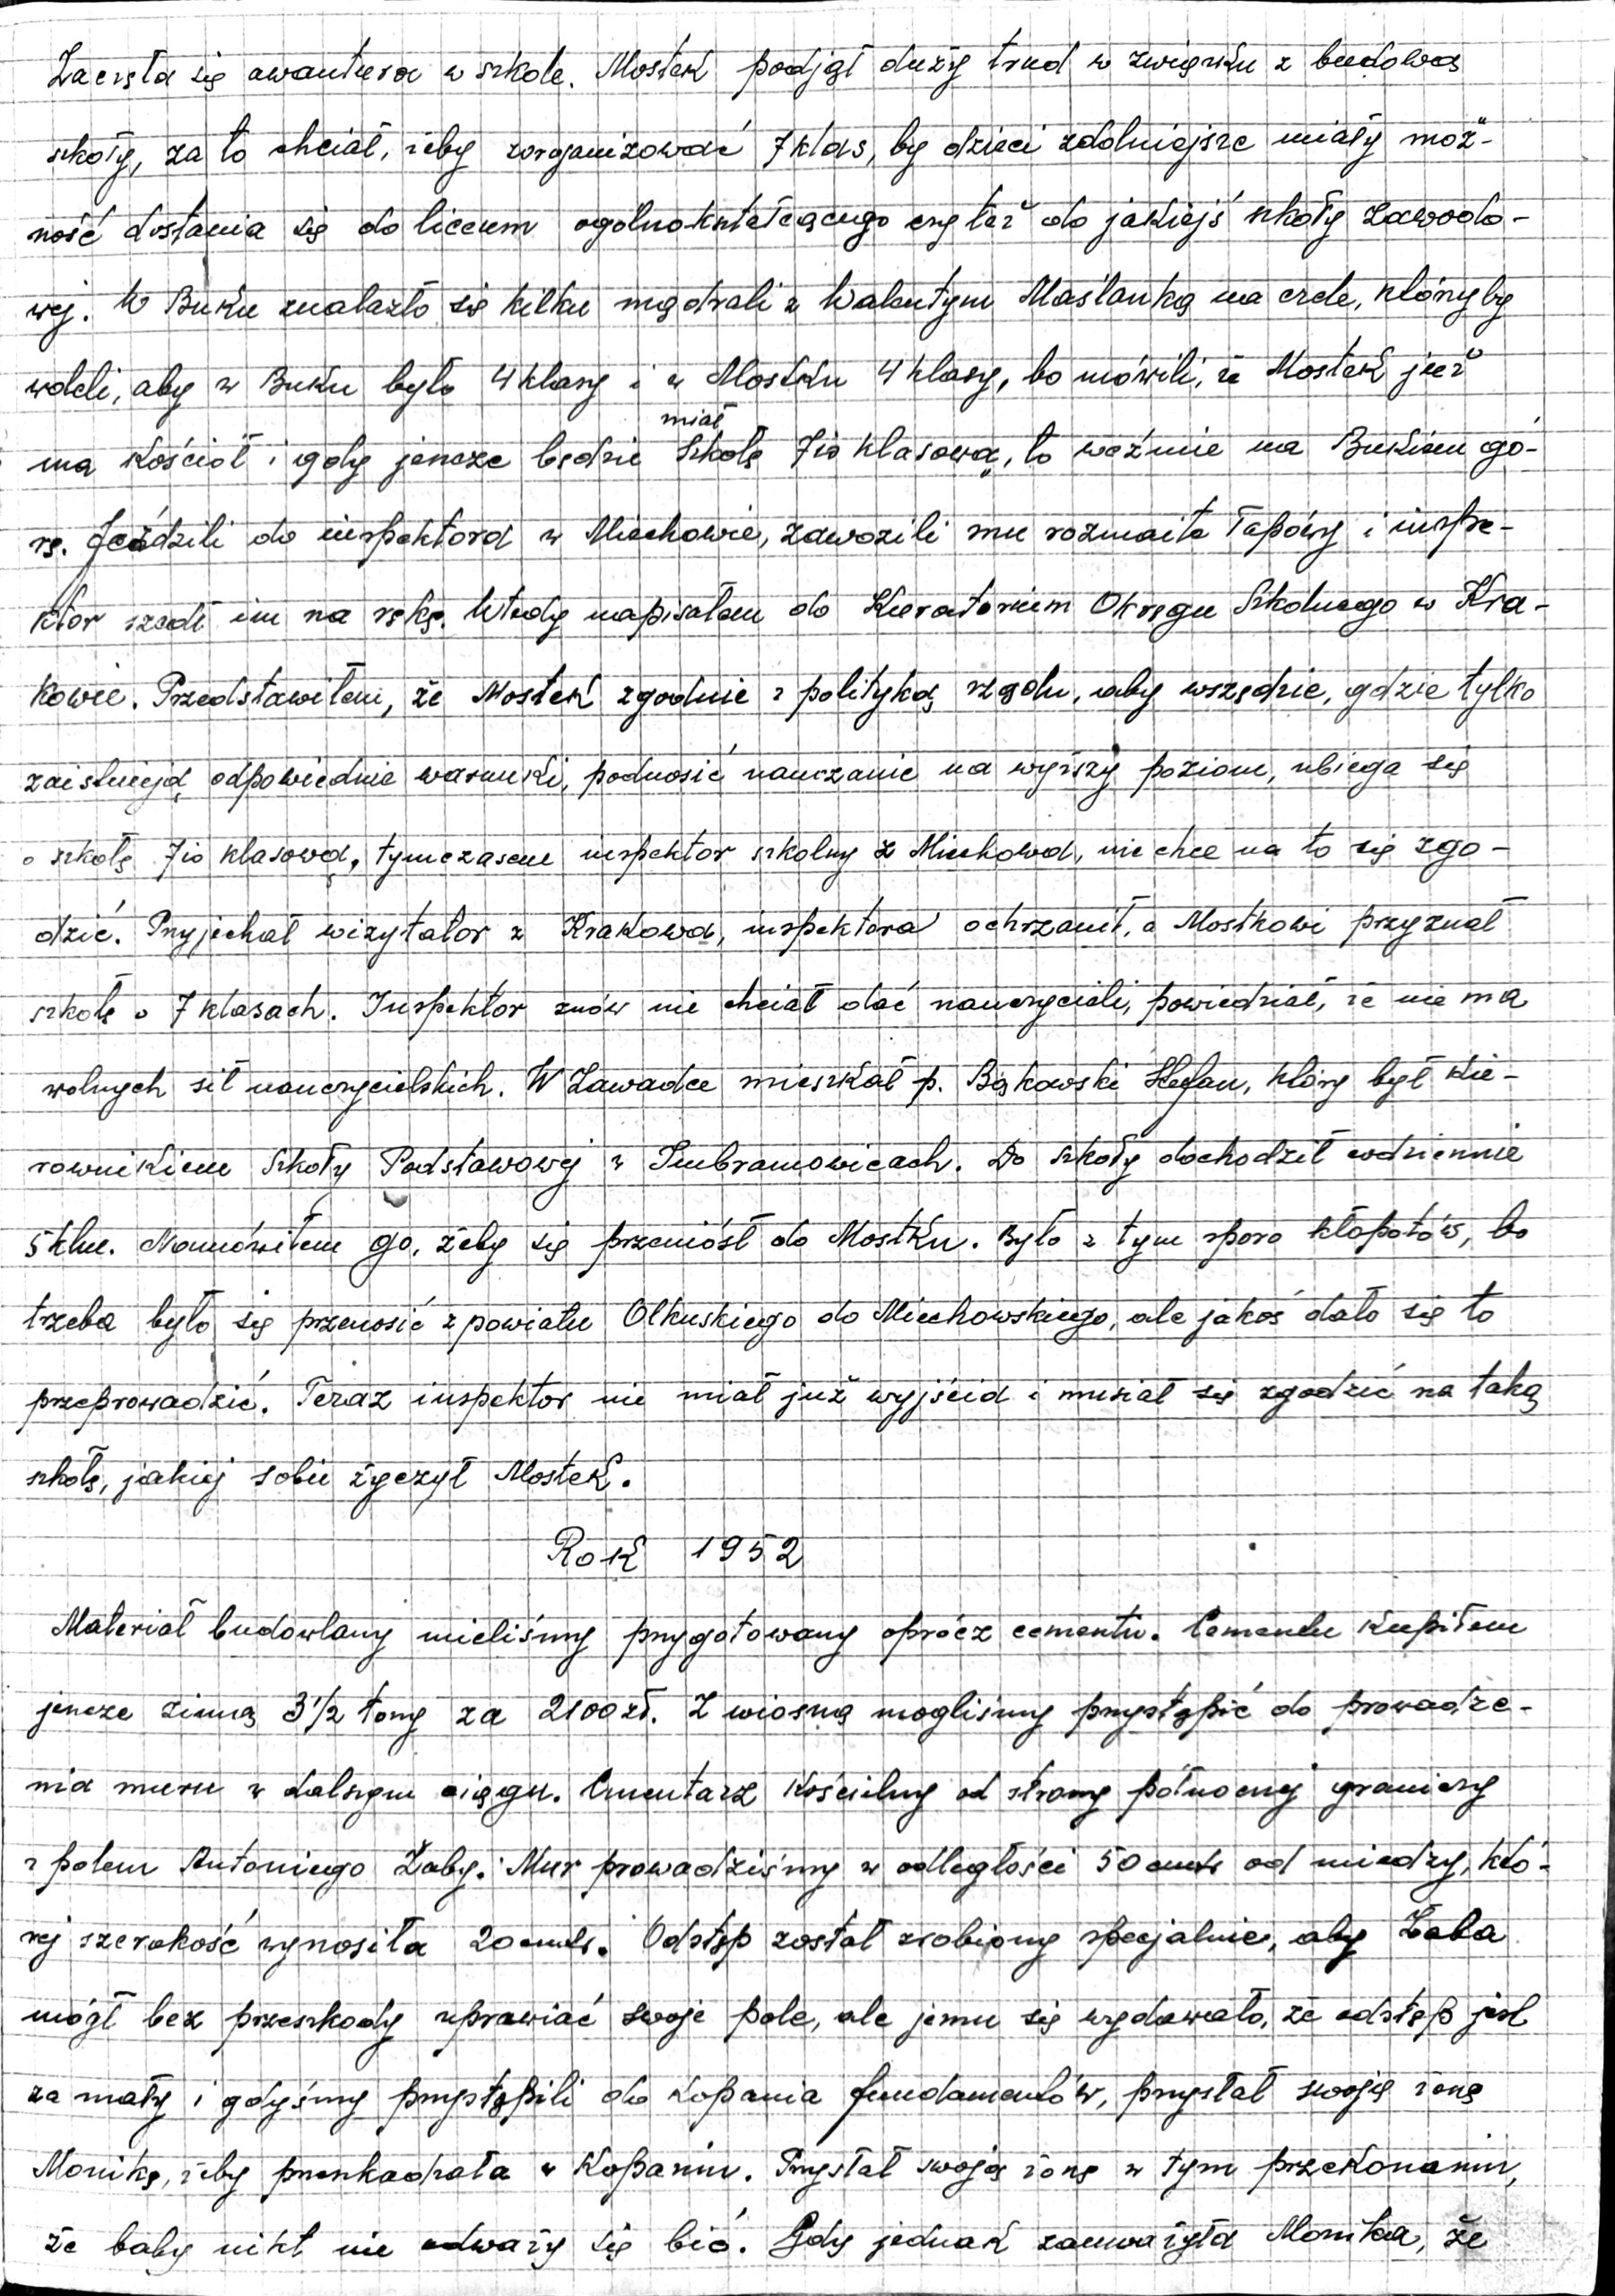 Zaczęła się awantura w szkole. Mostek podjął duży trud w związku z budową
szkoły, za to chciał, żeby zorganizować 7 klas, by dzieci zdolniejsze miały moż-
ność dostania się do liceum ogólnokształcącego czy też do jakiejś szkoły zawodo-
wej. W Buku znalazło się kilku mądrali z Walentym Maślanką na czele, którzyby
woleli, aby w Buku było 4 klasy i w Mostku 4 klasy, bo mówili, że Mostek już
miał
ma kościół i gdy jeszcze będzie szkołę 7io klasową, to weźmie na Bukiem gó-
rę. Jeździli do inspektora w Miechowie, zawozili mu rozmaite łapówy i inspe-
ktor szedł im na rękę. Wtedy napisałem do Kuratorium Okręgu Szkolnego w Kra-
kowie. Przedstawiłem, że Mostek zgodnie z polityką rządu, aby wszędzie, gdzie tylko
zaistnieją odpowiednie warunki, podnosić nauczanie na wyższy poziom, ubiega się
o szkołę 7io klasową, tymczasem inspektor szkolny z Miechowa, nie chce na to się zgo-
dzić. Przyjechał wizytator z Krakowa, inspektora ochrzanił, a Mostkowi przyznał
szkołę o 7 klasach. Inspektor znów nie chciał dać nauczycieli, powiedział, że nie ma
wolnych sił nauczycielskich. W Zawadce mieszkał p. Bąkowski Stefan, który był kie-
rownikiem Szkoły Podstawowej w Imbramowicach. Do szkoły dochodził codziennie
5 klm. Namówiłem go, żeby się przeniósł do Mostku. Było z tym sporo kłopotów, bo
trzeba było się przenosić z powiatu Olkuskiego do Miechowskiego, ale jakoś dało się to
przeprowadzić. Teraz inspektor nie miał już wyjścia i musiał się zgodzić na taką
szkołę, jakiej sobie życzył Mostek.
Rok 1952
Materiał budowlany mieliśmy przygotowany oprócz cementu. Cementu kupiłem
jeszcze zimą 3 1/2 tony za 2100 zł. Z wiosną mogliśmy przystąpić do prowadze-
nia muru w dalszym ciągu. Cmentarz kościelny od strony północnej graniczy
z polem Antoniego Żaby. Mur prowadziśmy w odległości 50 cmtr od miedzy, któ-
rej szerokość wynosiła 20 cmtr. Odstęp został zrobiony specjalnie, aby Żaba
mógł bez przeszkody uprawiać swoje pole, ale jemu się wydawało, że odstęp jest
za mały i gdyśmy przystąpili do kopania fundamentów, przysłał swoję żonę
Monikę, żeby przeszkadzała w kopaniu. Przysłał swoją żonę w tym przekonaniu,
że baby nikt nie odważy się bić. Gdy jednak zauważyła Monika, że